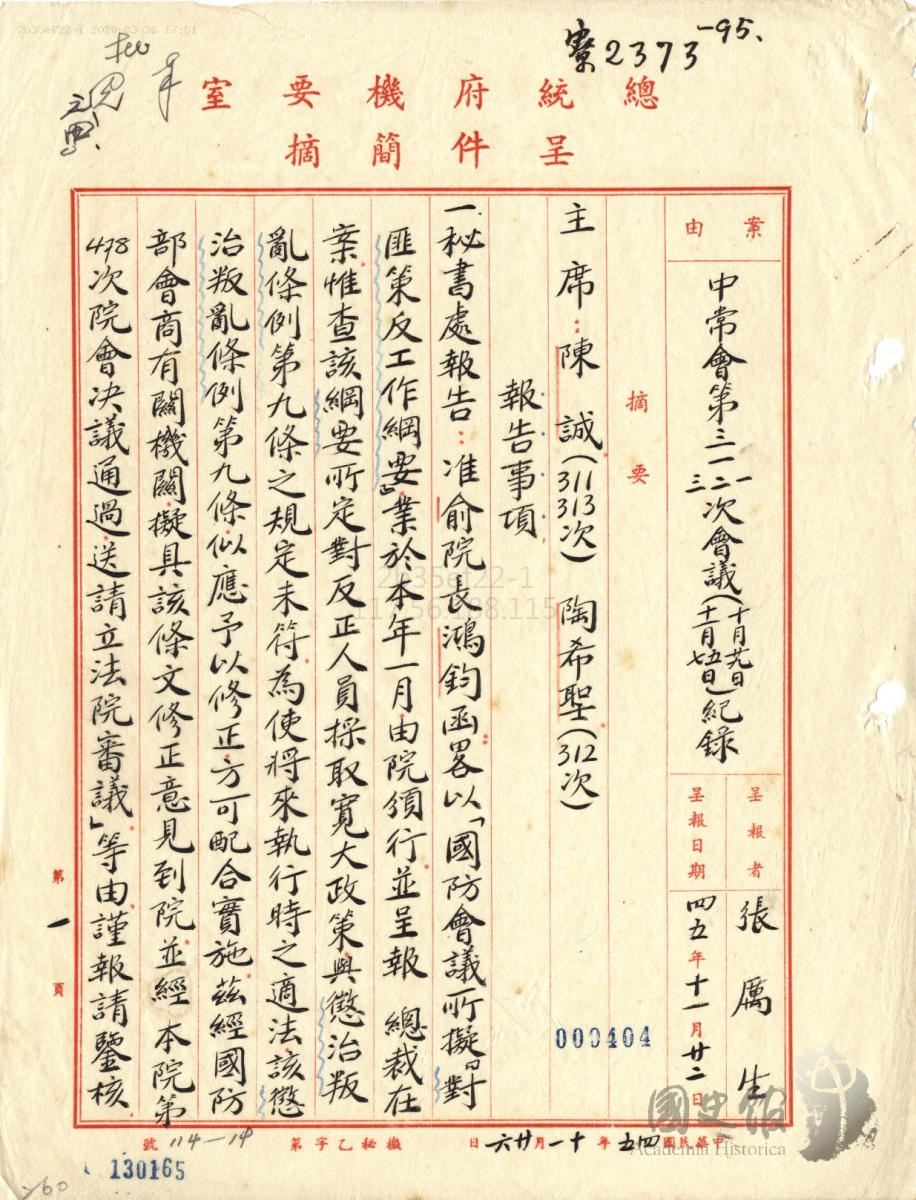 2b35ef22-1 2020-03-26 17:51
2373
-95.
總統府機要室
呈件簡摘
案由
中常會第三一一 三一二 三一三次會議(十月廿九日 十一月五日 七日)紀錄
呈報者
張厲生
呈報日期
四五年十一月廿二日
摘要
主席:陳誠(311 313次) 陶希聖(312次)
報告事項
一秘書處報告:准俞院長鴻鈞函畧以「國防會議所擬『對
匪策反工作綱要』業於本年一月由院頒行並呈報 總裁在
案惟查該綱要所定對反正人員採取寬大政策與懲治叛
亂條例第九條之規定未符為使將來執行時之適法該懲
治叛亂條例第九條似應予以修正方可配合實施茲經國防
部會商有關機關擬具該條文修正意見到院並經本院第
478次院會決議通過送請立法院審議」等由謹報請鑒核
第一頁
000404
2b35ef22-1
117.56.188.115
中華民國四五年十一月廿六日
機秘乙字第114-14號
130165
國史館
Academia Historica